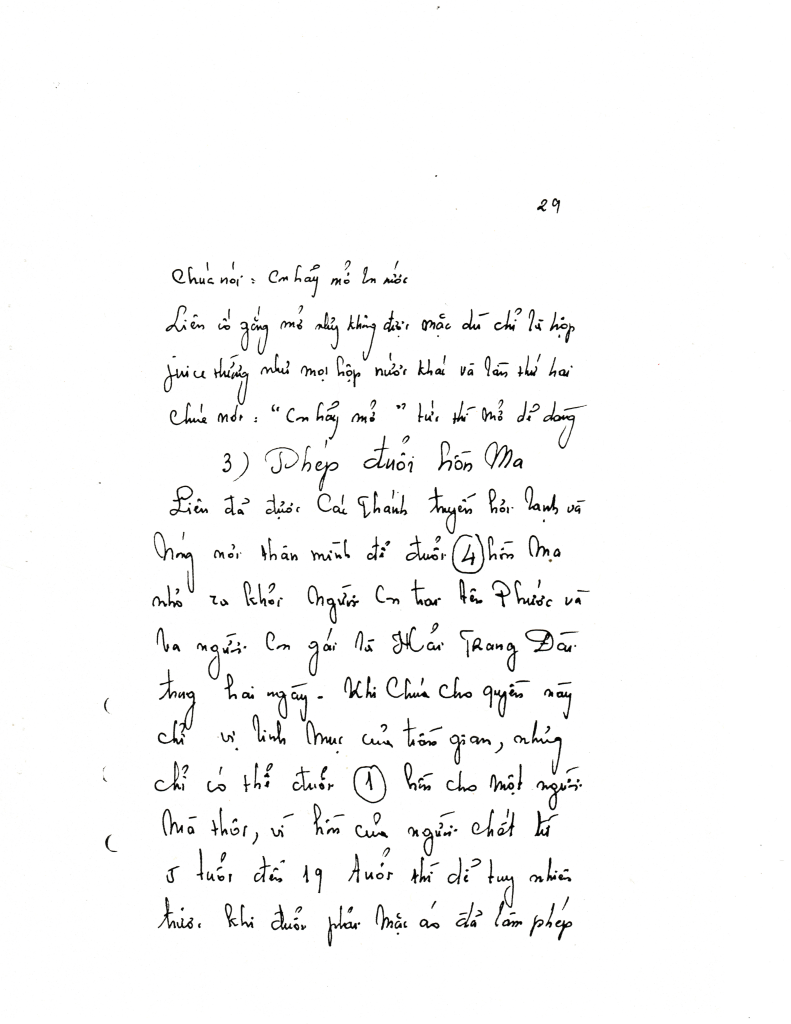 29
Chúa nói: Con hãy mở lon nước
Liên cố gắng mở nhưng không được mặc dù chỉ là hộp
juice thường như mọi hộp nước khác và lần thứ hai
Chúa nói: "Con hãy mở" tức thì mở dể dàng
3) Phép đuổi hồn Ma
Liên đả được Các Thánh truyền hỏi lạnh và
Nóng nơi thân mình để đuổi 4 hồn Ma
nhỏ ra khỏi Người Con trai tên Phước và
ba người Con gái là Hải Trang Đài
trong hai ngày - Khi Chúa cho quyền này
chỉ vị linh Mục của trần gian, nhưng
chỉ có thể đuổi 1 hồn cho một người
Mà thôi, vì hồn của người chết từ
5 tuổi đến 19 tuổi thì dể tuy nhiên
trước khi đuổi phải Mặc áo đả làm phép